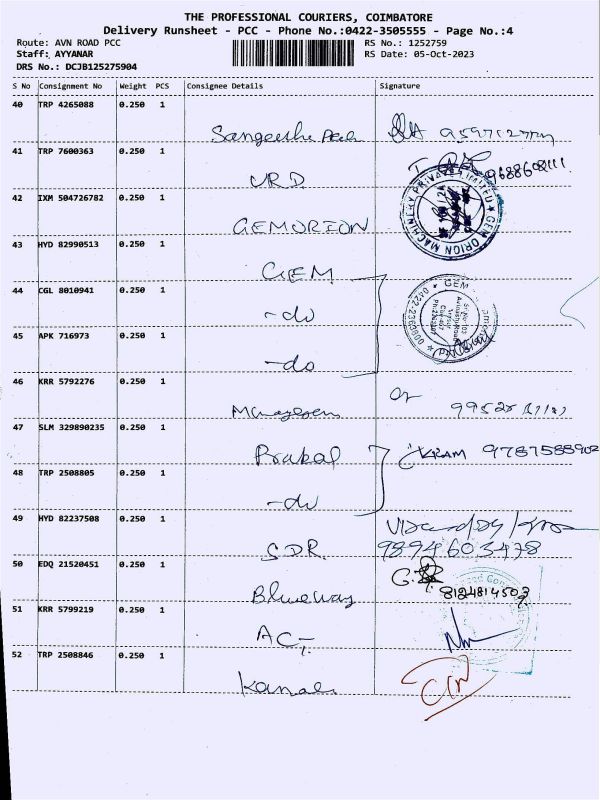 THE PROFESSIONAL COURIERS, COIMBATORE
Delivery Runsheet - PCC - Phone No.:0422-3505555 - Page No.:4
Route: AVN ROAD PCC RS No.: 1252759
Staff: AYYANAR RS Date: 05-Oct-2023
DRS No.: DCJB125275904
S No Consignment No Weight PCS Consignee Details Signature
40 TRP 4265088 0.250 1
Sangeetha
41 TRP 7600363 0.250 1
URD 9688608111
42 IXM 504726782 0.250 1
GEMORION
GEM ORION MACHINERY PRIVATE LIMITED
43 HYD 82990513 0.250 1
GEM
44 CGL 8010941 0.250 1
-do
GEM
45 APK 716973 0.250 1
-do
46 KRR 5792276 0.250 1
47 SLM 329890235 0.250 1
9787588902
48 TRP 2508805 0.250 1
-do
49 HYD 82237508 0.250 1
SDR 9894603478
50 EDQ 21520451 0.250 1
Blueway 8124814503
51 KRR 5799219 0.250 1
ACT
52 TRP 2508846 0.250 1